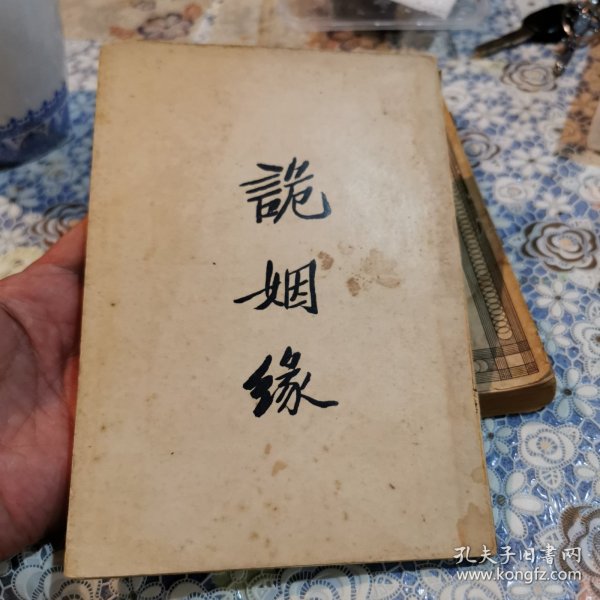 詭
姻
缘
孔夫子旧书网
www.kongfz.com